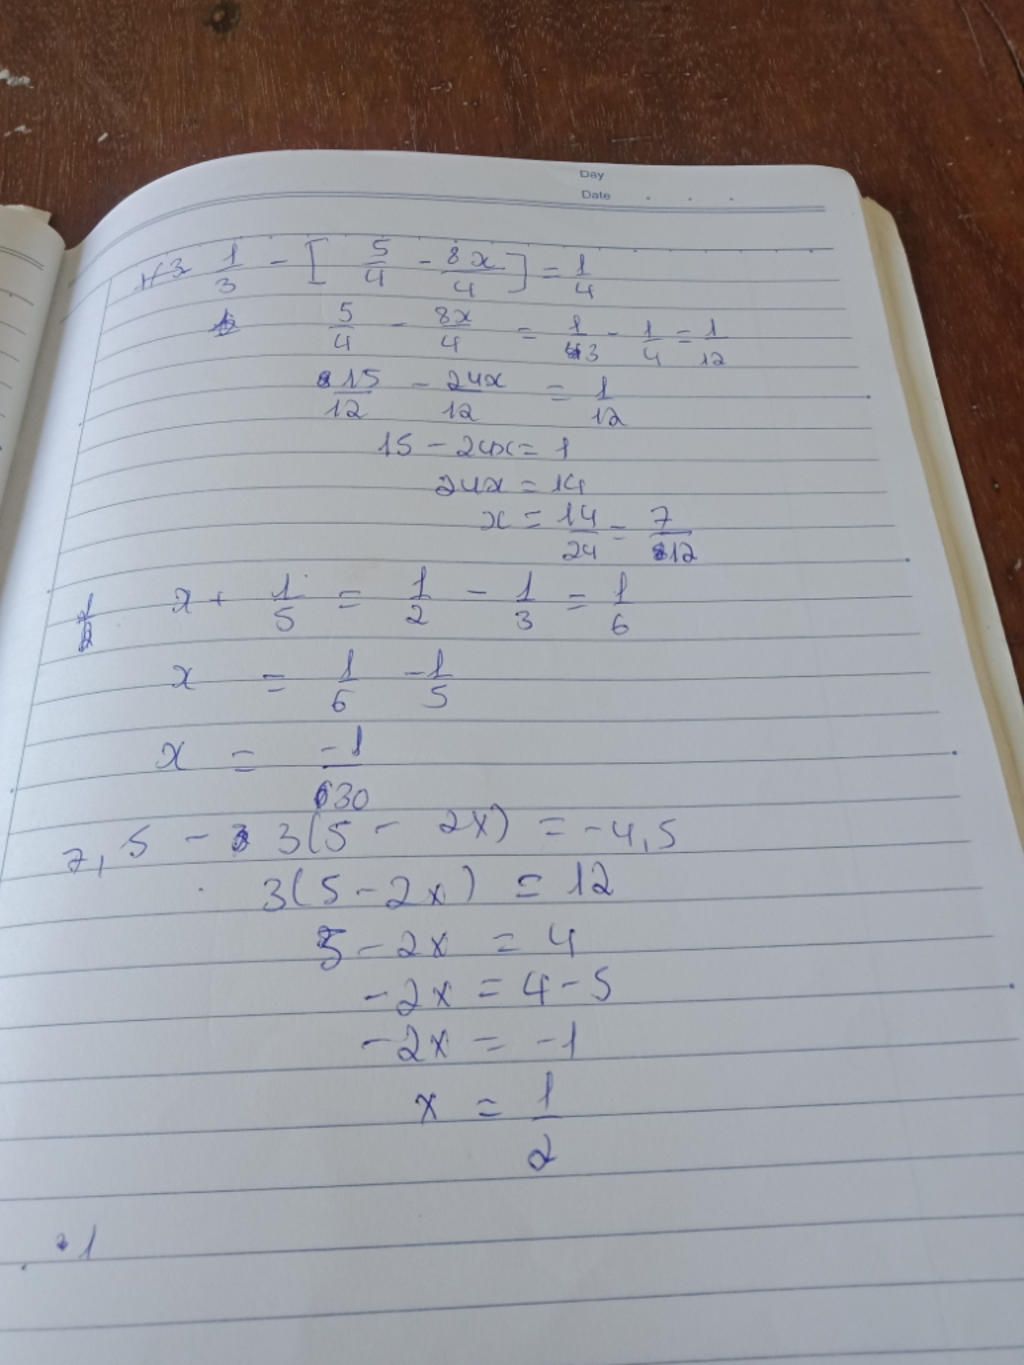 Day
Date . . .
1/3 - [ 5/4 - 8x/4 ] = 1/4
5/4 - 8x/4 = 1/3 - 1/4 = 1/12
15/12 - 24x/12 = 1/12
15 - 24x = 1
24x = 14
x = 14/24 = 7/12
x + 1/5 = 1/2 - 1/3 = 1/6
x = 1/6 - 1/5
x = -1/30
7,5 - 3(5 - 2x) = -4,5
3(5 - 2x) = 12
5 - 2x = 4
-2x = 4 - 5
-2x = -1
x = 1/2
1